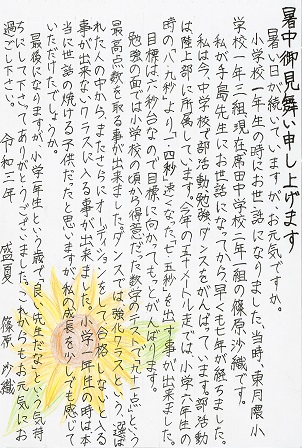 暑中御見舞い申し上げます
暑い日が続いていますが、お元気ですか。
小学校一年生の時にお世話になりました、当時、東月隈小
学校一年三組、現在席田中学校二年一組の篠原沙織です。
私が手島先生にお世話になってから早くも七年が経ちました。
私は今、中学校で部活動、勉強、ダンスをがんばっています。部活動
は陸上部に所属しています。二年の百メートル走では、小学六年生の
時の「八・九秒」より「一・四秒」速くなった「七・五秒」を出す事が出来ました。
目標は六秒台なので目標に向かってもっとがんばります。
勉強の面では小学校の頃から得意だった数学のテストで九十一点という
最高点数を取る事が出来ました。ダンスでは、強化クラスという、選ば
れた人の中から、またさらにオーディションをして合格しないと入る
事が出来ないクラスに入る事が出来ました。小学一年生の時は本
当に世話の焼ける子供だったと思いますが私の成長を少しでも感じて
いただけたでしょうか。
最後になりますが、小学一年生という歳で「良い先生だな」という気持
ちにして下さってありがとうございました。これからもお元気にお
過ごし下さい。
令和三年 盛夏 篠原 沙織